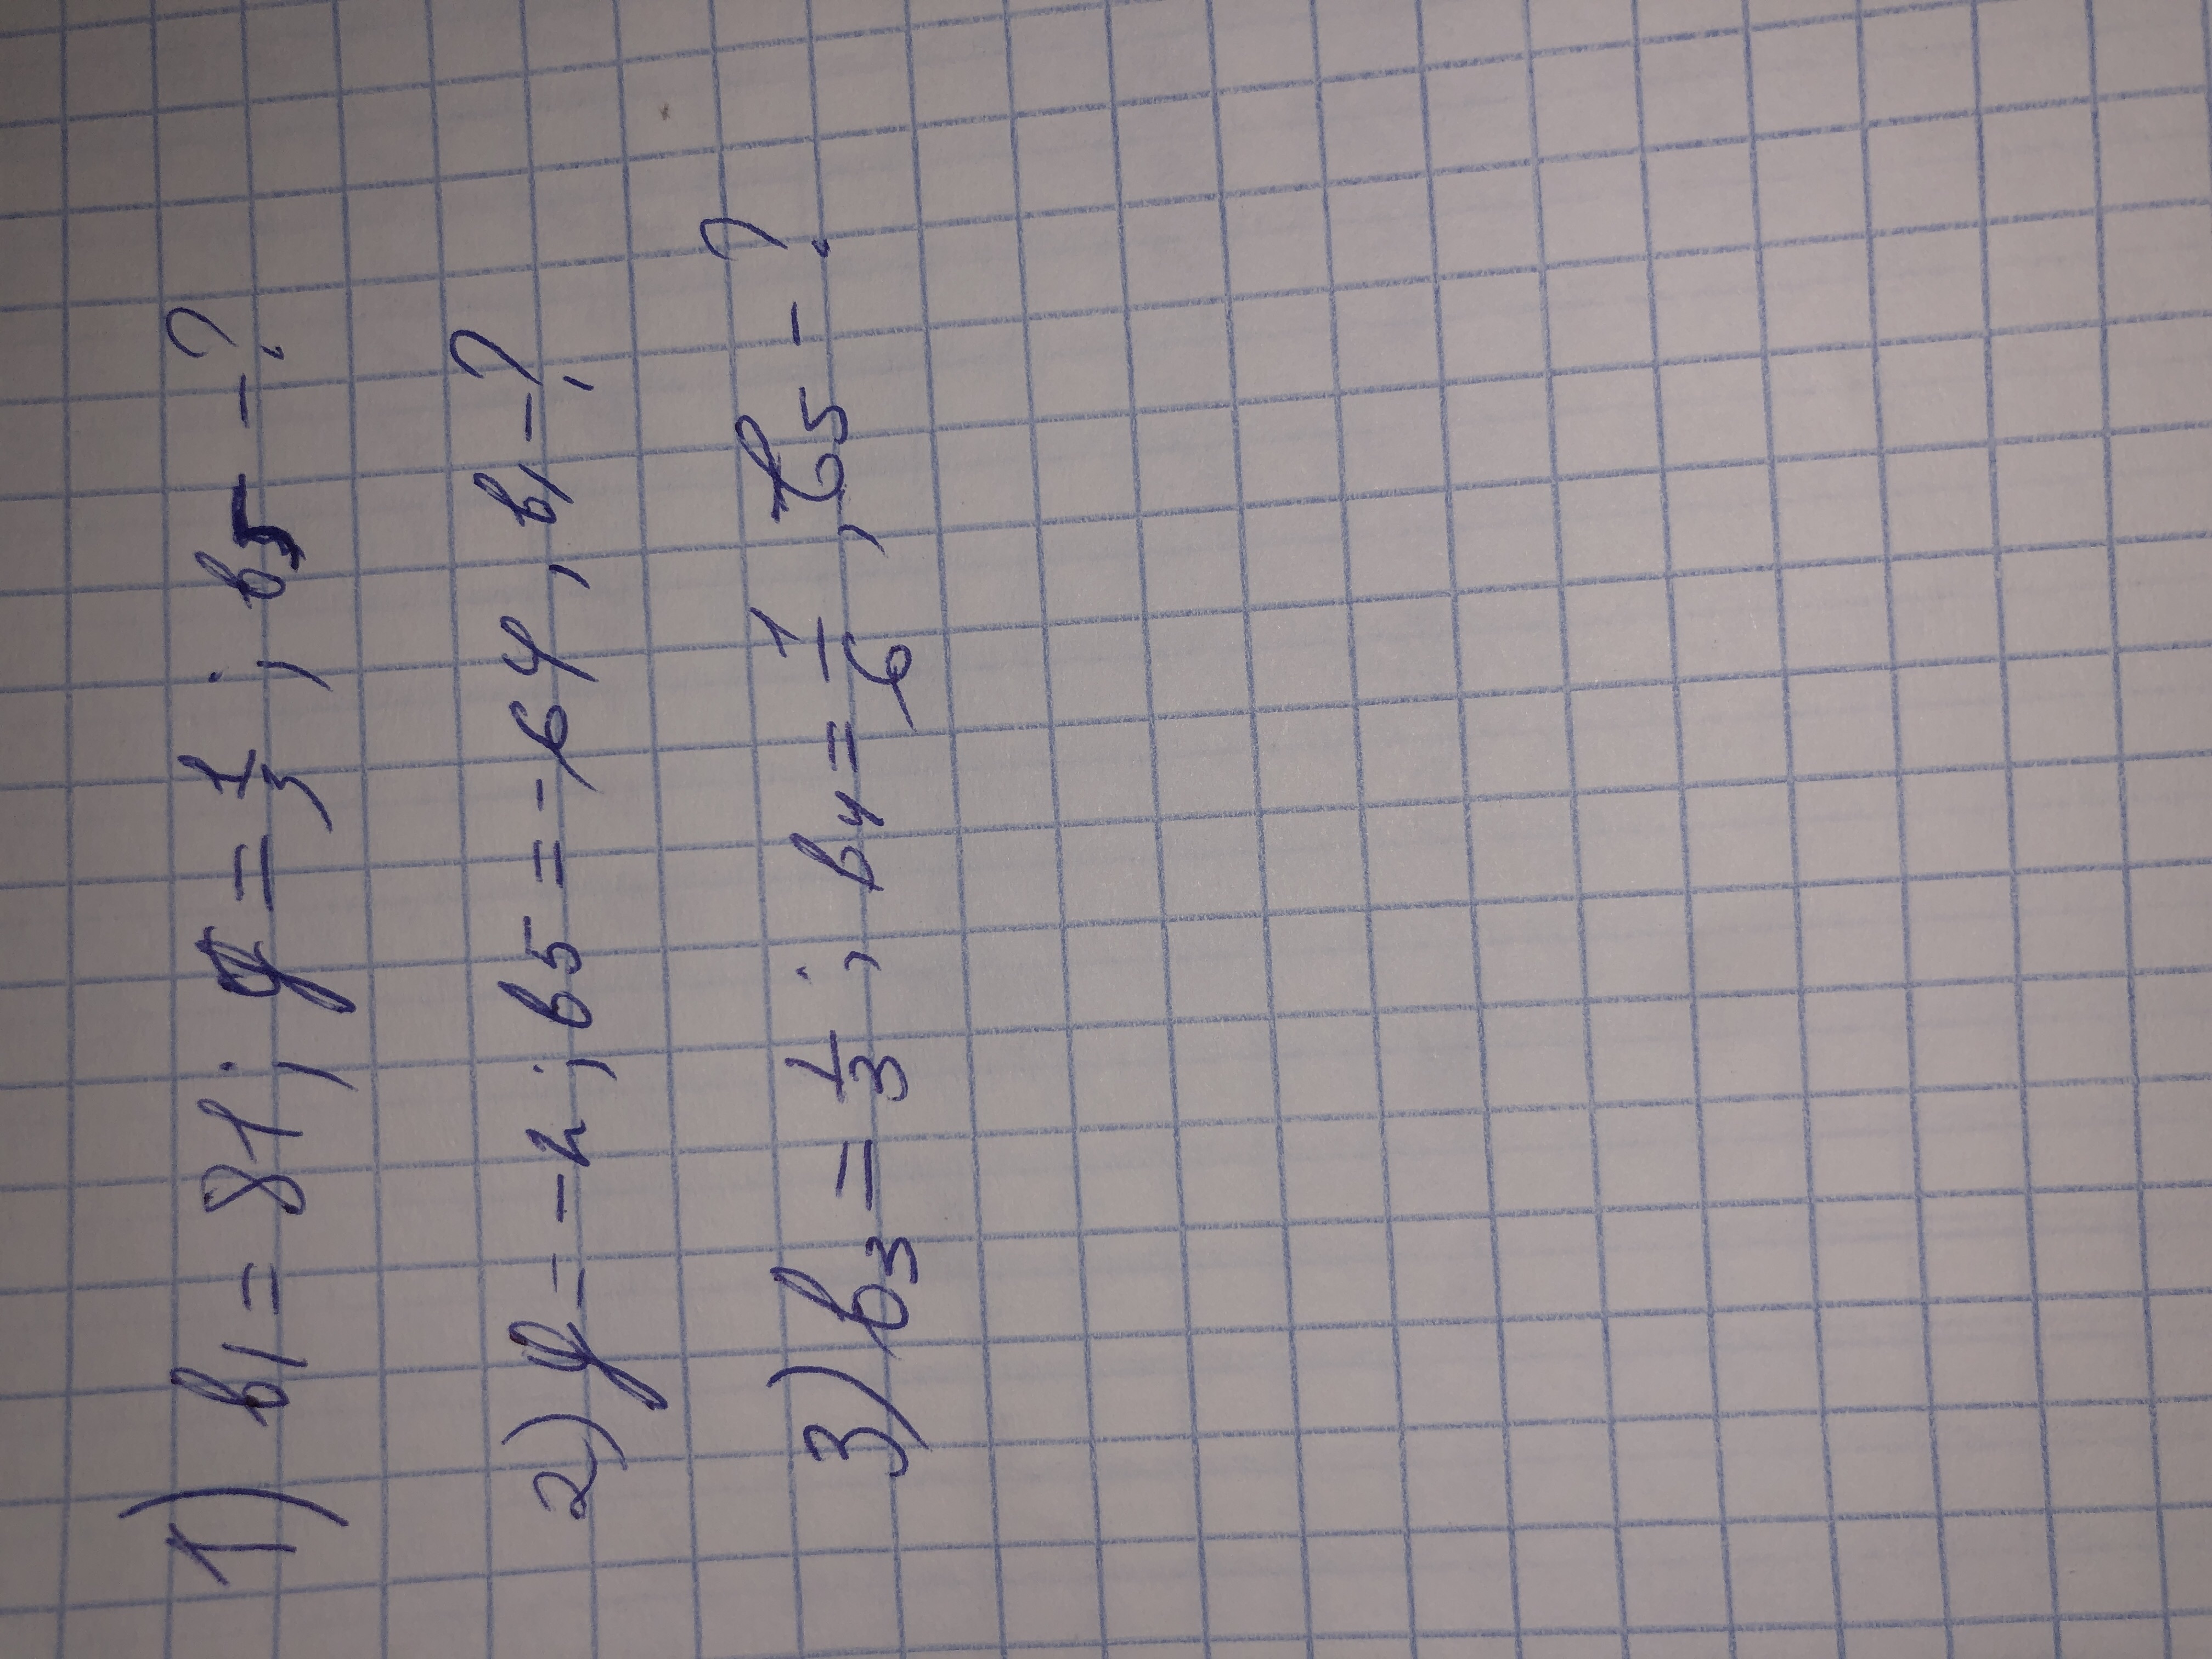 1) b₁ = 81; q = 1/3; b₅ - ?
2) q = -2; b₅ = -64, b₁ - ?
3) b₃ = 1/3; b₄ = 1/6, b₅ - ?